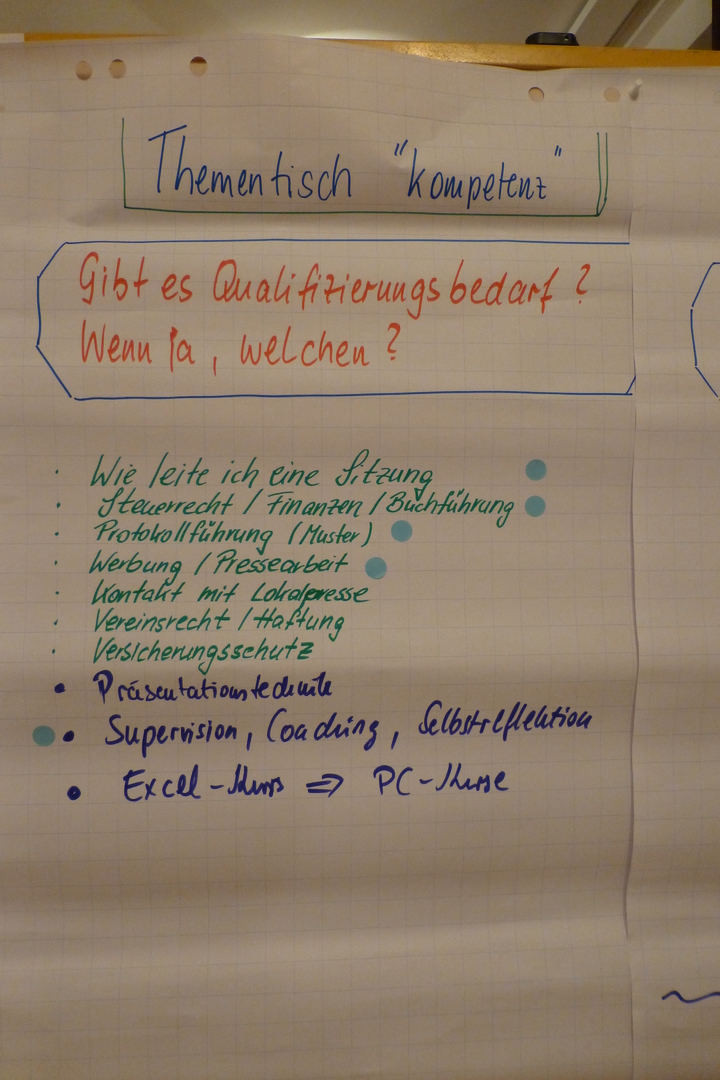 Thementisch "Kompetenz"
Gibt es Qualifizierungsbedarf?
Wenn ja, welchen?
· Wie leite ich eine Sitzung
· Steuerrecht / Finanzen / Buchführung
· Protokollführung (Muster)
· Werbung / Pressearbeit
· Kontakt mit Lokalpresse
· Vereinsrecht / Haftung
· Versicherungsschutz
• Präsentationstechnik
• Supervision, Coaching, Selbstreflektion
• Excel-Kurs ⇒ PC-Kurse